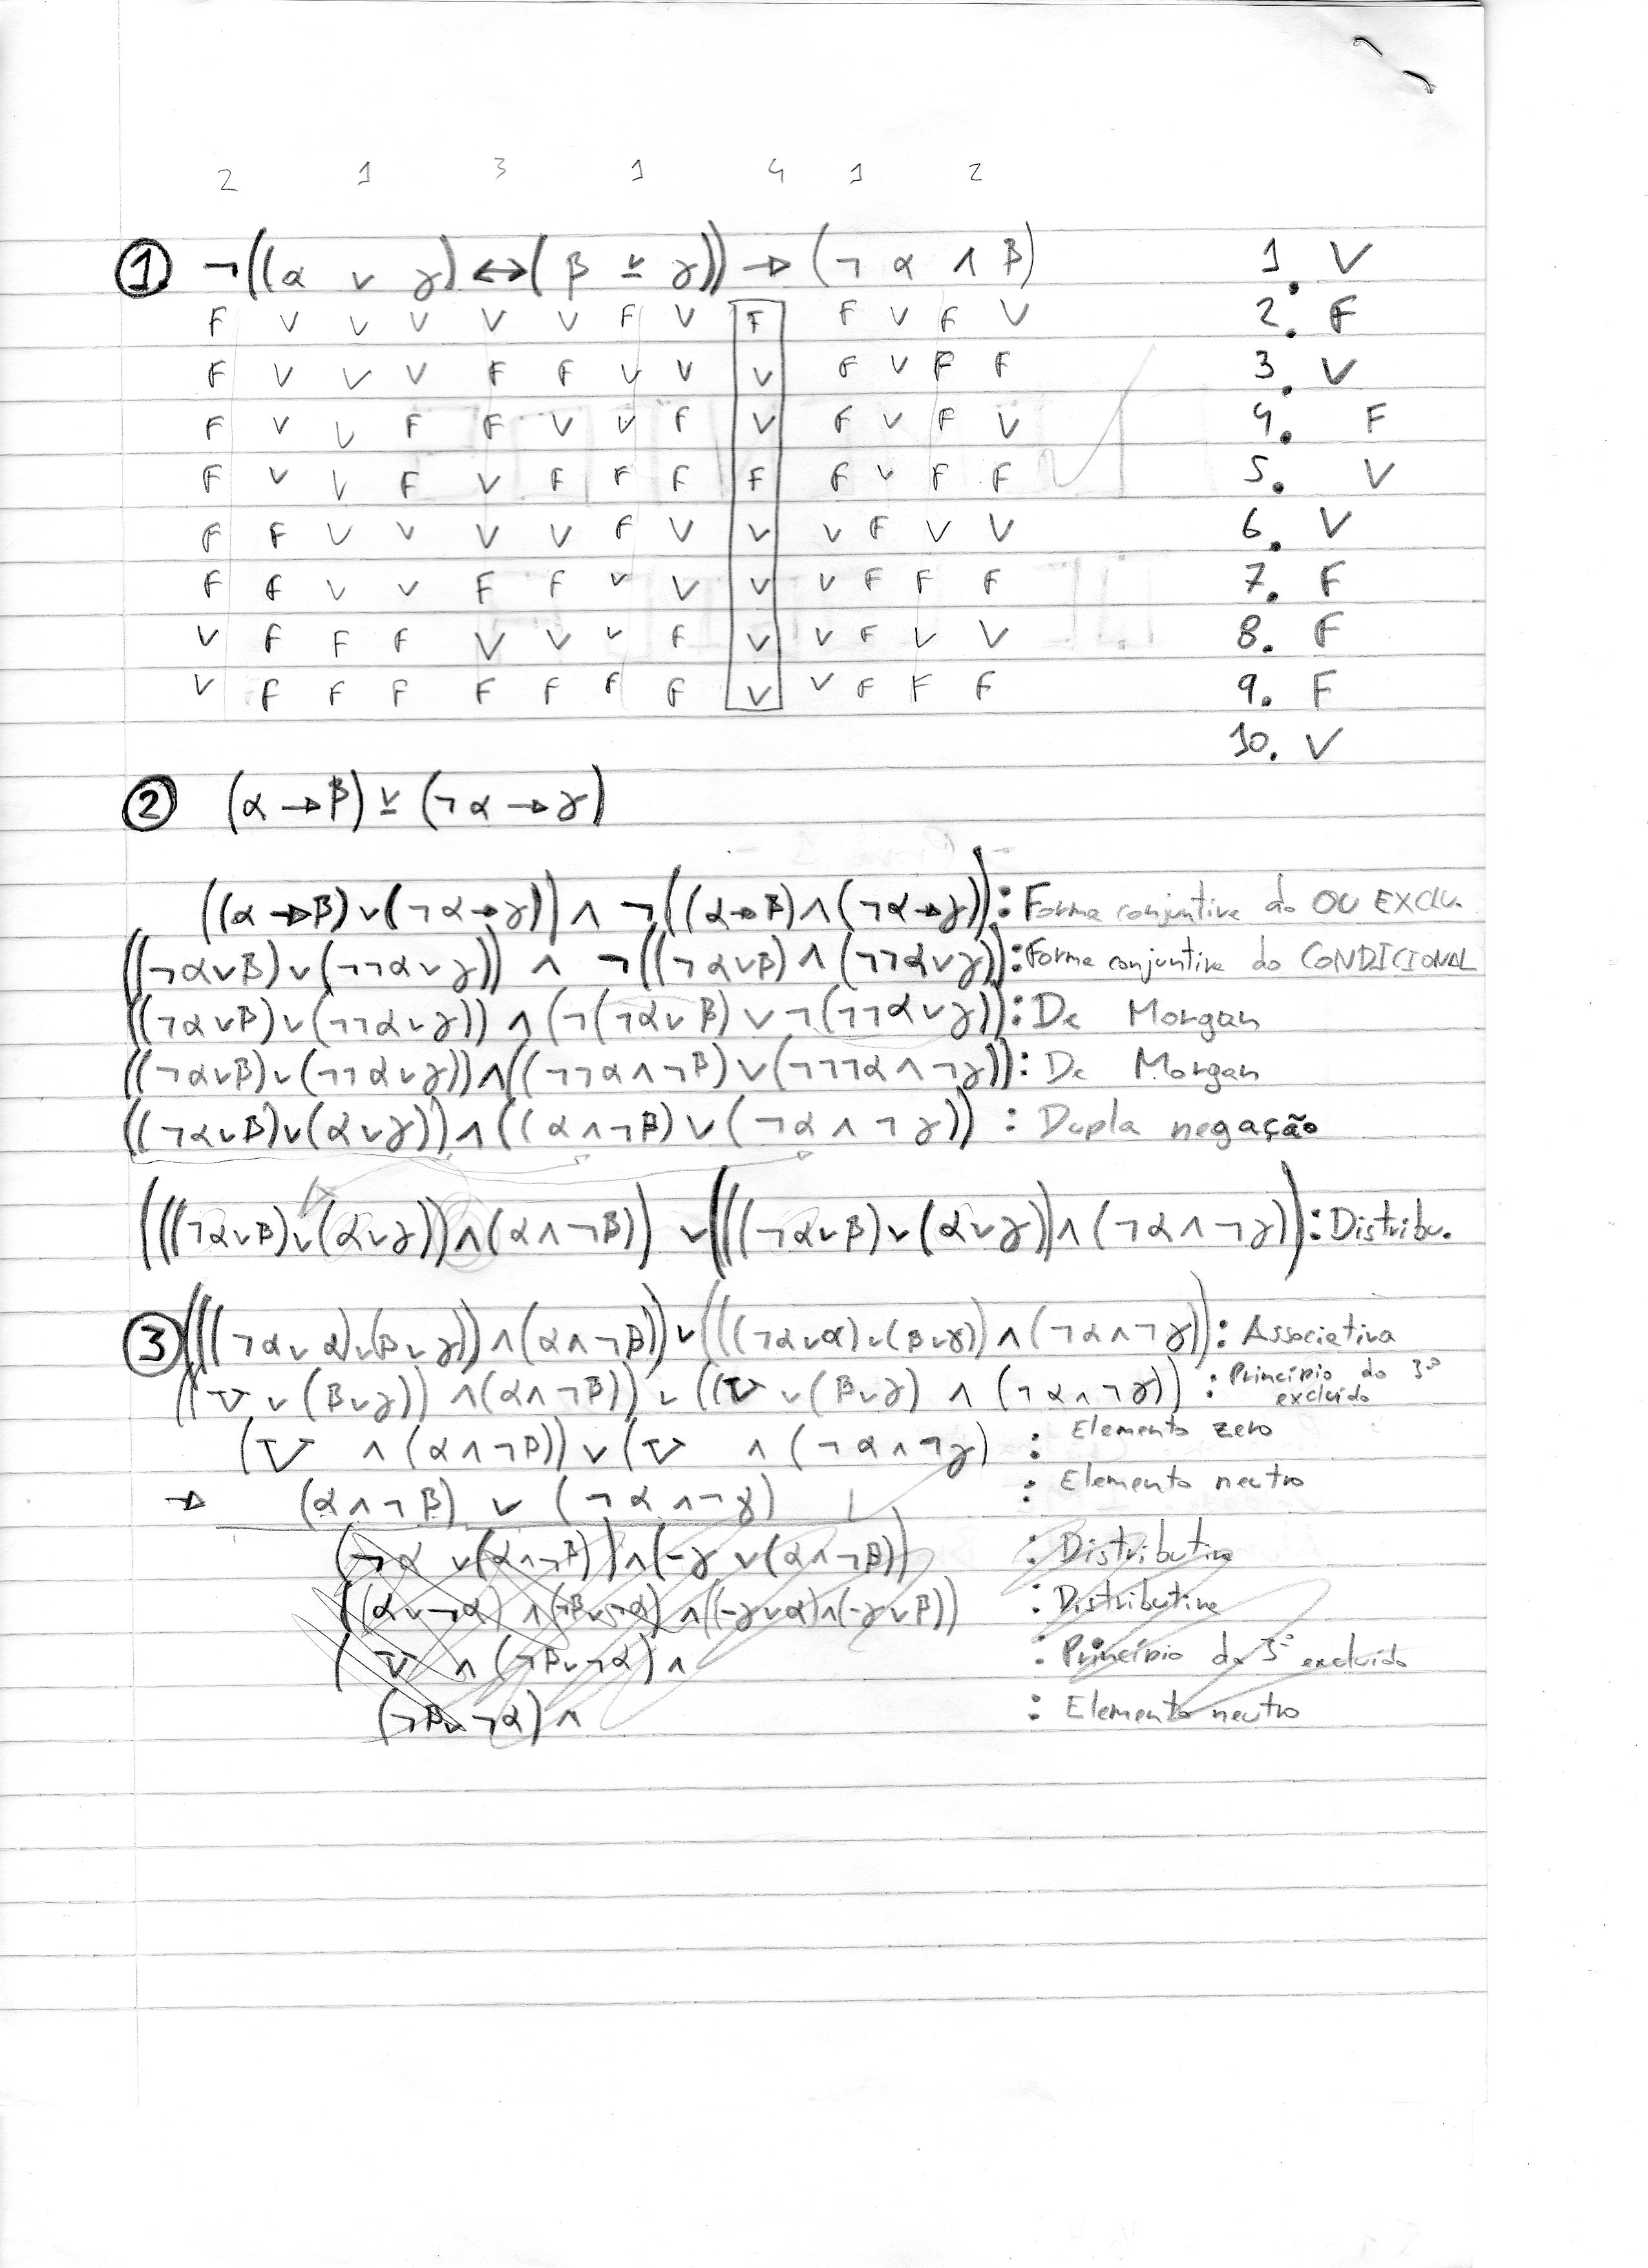 2 1 3 1 4 1 2
① ¬((α ∨ γ) ↔ (β ⊻ γ)) → (¬ α ∧ β) 1. V
F V V V V V F V F F V F V 2. F
F V V V F F V V V F V F F 3. V
F V V F F V V F V F V F V 4. F
F V V F V F F F F F V F F 5. V
F F V V V V F V V V F V V 6. V
F F V V F F V V V V F F F 7. F
V F F F V V V F V V F V V 8. F
V F F F F F F F V V F F F 9. F
10. V
② (α → β) ⊻ (¬ α → γ)
((α → β) ∨ (¬ α → γ)) ∧ ¬((α → β) ∧ (¬ α → γ)) : Forma conjuntiva do OU EXCLU.
((¬α ∨ β) ∨ (¬¬α ∨ γ)) ∧ ¬((¬α ∨ β) ∧ (¬¬α ∨ γ)) : Forma conjuntiva do CONDICIONAL
((¬α ∨ β) ∨ (¬¬α ∨ γ)) ∧ (¬(¬α ∨ β) ∨ ¬(¬¬α ∨ γ)) : De Morgan
((¬α ∨ β) ∨ (¬¬α ∨ γ)) ∧ ((¬¬α ∧ ¬β) ∨ (¬¬¬α ∧ ¬γ)) : De Morgan
((¬α ∨ β) ∨ (α ∨ γ)) ∧ ((α ∧ ¬β) ∨ (¬α ∧ ¬γ)) : Dupla negação
(((¬α ∨ β) ∨ (α ∨ γ)) ∧ (α ∧ ¬β)) ∨ (((¬α ∨ β) ∨ (α ∨ γ)) ∧ (¬α ∧ ¬γ)) : Distribu.
③ (((¬α ∨ α) ∨ (β ∨ γ)) ∧ (α ∧ ¬β)) ∨ (((¬α ∨ α) ∨ (β ∨ γ)) ∧ (¬α ∧ ¬γ)) : Associativa
((V ∨ (β ∨ γ)) ∧ (α ∧ ¬β)) ∨ ((V ∨ (β ∨ γ) ∧ (¬α ∧ ¬γ)) : Princípio do 3º excluído
(V ∧ (α ∧ ¬β)) ∨ (V ∧ (¬α ∧ ¬γ) : Elemento zero
→ (α ∧ ¬β) ∨ (¬α ∧ ¬γ) : Elemento neutro
(¬α ∨ (α ∧ ¬β)) ∧ (¬γ ∨ (α ∧ ¬β)) : Distributiva
((α ∨ ¬α) ∧ (¬β ∨ ¬α) ∧ ((¬γ ∨ α) ∧ (¬γ ∨ β)) : Distributiva
(V ∧ (¬β ∨ ¬α) ∧ : Princípio do 3º excluído
(¬β ∨ ¬α) ∧ : Elemento neutro